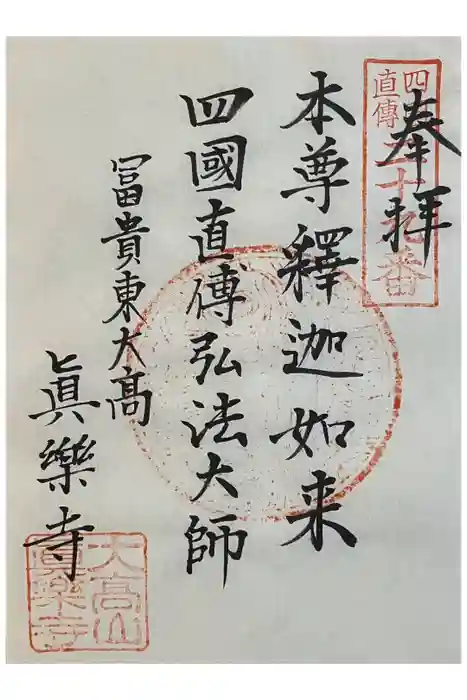 奉拝
四直傳 二十九番
本尊釋迦如来
四國直傳弘法大師
冨貴東大高
眞樂寺
大高山
眞樂寺